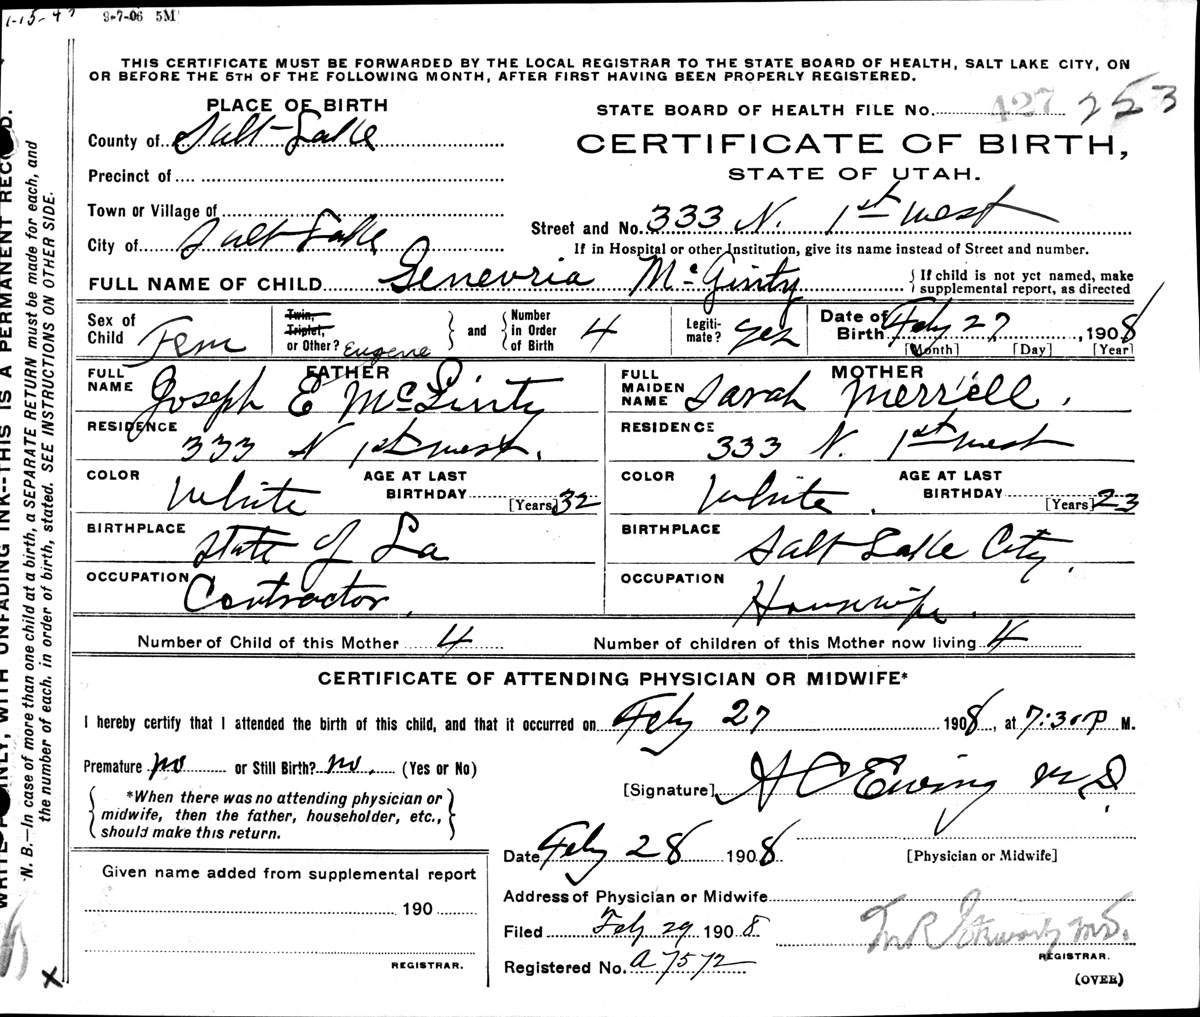 1-15-4
9-7-06 5M
THIS CERTIFICATE MUST BE FORWARDED BY THE LOCAL REGISTRAR TO THE STATE BOARD OF HEALTH, SALT LAKE CITY, ON
OR BEFORE THE 5TH OF THE FOLLOWING MONTH, AFTER FIRST HAVING BEEN PROPERLY REGISTERED.
PLACE OF BIRTH
County of Salt Lake
Precinct of
Town or Village of
City of Salt Lake
STATE BOARD OF HEALTH FILE No. 427 253
CERTIFICATE OF BIRTH,
STATE OF UTAH.
Street and No. 333 N. 1st West
If in Hospital or other Institution, give its name instead of Street and number.
FULL NAME OF CHILD Genevria McGinty
If child is not yet named, make
supplemental report, as directed
Sex of Child Fem
Twin, Triplet, or Other? Eugene
and
Number in Order of Birth 4
Legiti-mate? yes
Date of Birth Feby 27, 1908
[Month] [Day] [Year]
FATHER
FULL NAME Joseph E McGinty
RESIDENCE 333 N 1st West.
COLOR White
AGE AT LAST BIRTHDAY [Years] 32
BIRTHPLACE State of La
OCCUPATION Contractor.
MOTHER
FULL MAIDEN NAME Sarah Merrill.
RESIDENCE 333 N. 1st West
COLOR White.
AGE AT LAST BIRTHDAY [Years] 23
BIRTHPLACE Salt Lake City.
OCCUPATION Housewife.
Number of Child of this Mother 4
Number of children of this Mother now living 4
CERTIFICATE OF ATTENDING PHYSICIAN OR MIDWIFE*
I hereby certify that I attended the birth of this child, and that it occurred on Feby 27 1908, at 7:30 P M.
Premature no or Still Birth? no. (Yes or No)
*When there was no attending physician or
midwife, then the father, householder, etc.,
should make this return.
[Signature] H C Ewing M D.
Date Feby 28 1908
[Physician or Midwife]
Given name added from supplemental report
190
REGISTRAR.
Address of Physician or Midwife
Filed Feby 29 1908
Registered No. A 7572
M.D.
REGISTRAR.
(OVER)
WRITE PLAINLY, WITH UNFADING INK--THIS IS A PERMANENT RECORD.
N. B.—In case of more than one child at a birth, a SEPARATE RETURN must be made for each, and
the number of each, in order of birth, stated. SEE INSTRUCTIONS ON OTHER SIDE.
X